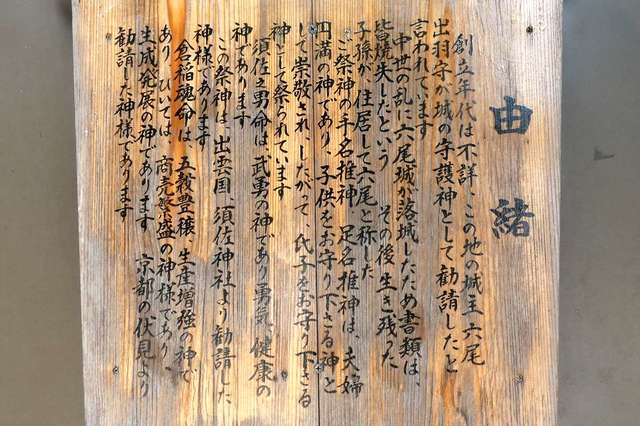 由緒
創立年代は不詳、この地の城主六尾
出羽守が城の守護神として勧請したと
言われています
中世の乱に六尾城が落城したため書類は、
皆焼失したという その後 生き残った
子孫が、住居して六尾と称した
ご祭神の手名椎神、足名椎神は、夫婦
円満の神であり、子供をお守り下さる神と
して崇敬され したがって、氏子をお守り下さる
神として祭られています
須佐之男命は、武勇の神であり勇気、健康の
神であります
この祭神は、出雲国 須佐神社より勧請した、
神様であります
倉稲魂命は、五穀豊穣、生産増強の神で
あり ひいては、商売繁盛の神様であり、
生成発展の神であります 京都の伏見より
勧請した神様であります